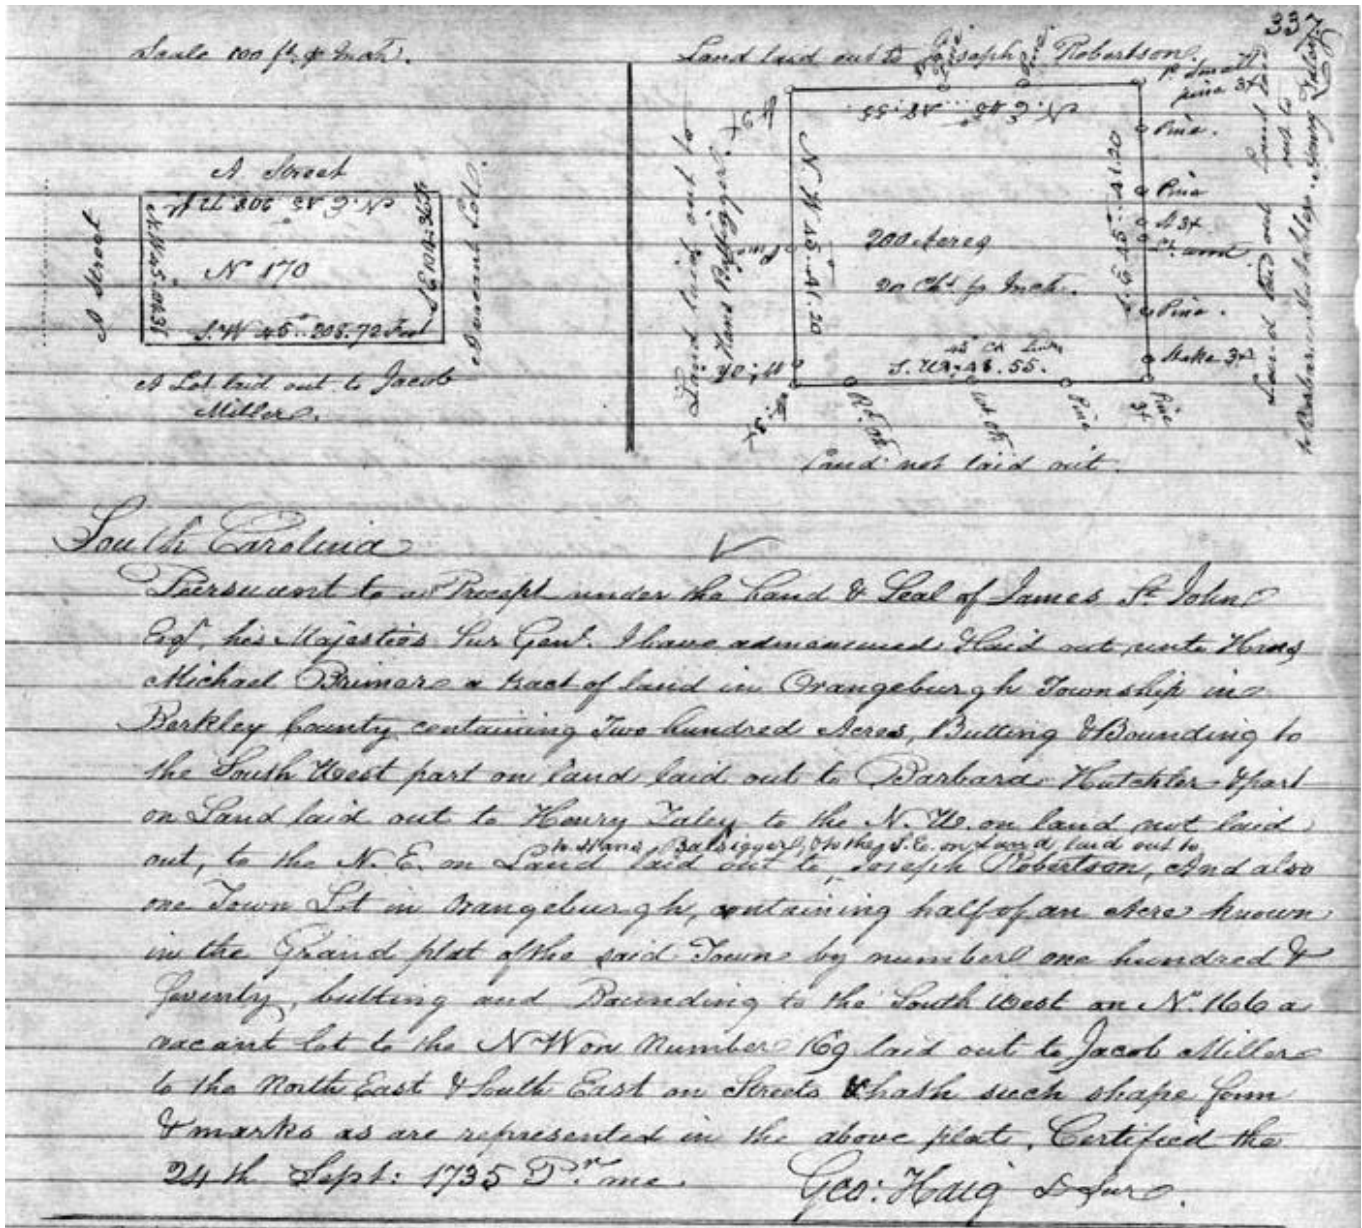 337
Scale 100 ft. p Inch.
A Street
A Street
N. E. 45° 208.72 ft
N. W. 45°
No 170
S. W 45°. 208.72 Feet
A vacant Lot.
A Lot laid out to Jacob
Miller.
Land laid out to Joseph Robertson.
Pine
Pine 3x
Pine.
Pine
A 3x
Pine.
Stake 3x
Pine
3x
N. E. 45° .. 48.55
N W 45°. 41.20
S. E 45°. 41.20
200 Acres
20 Chs. p Inch.
S. W. 48.55.
Pine
Pine
Land laid out to
Hans
Land laid out
to Barbara Hutchler
Land laid
out to
Henry Faley
Land not laid out.
South Carolina
Pursuant to a Precept under the hand & Seal of James St. John
Esqr. his Majesties Sur Genl. I have admeasured & laid out unto Hans
Michael Primer a tract of land in Orangeburgh Township in
Berkley County containing Two hundred Acres, Butting & Bounding to
the South West part on land laid out to Barbara Hutchler & part
on Land laid out to Henry Faley to the N. W. on land not laid
to Hans Balsigger, & to the S.E. on Land laid out to
out, to the N. E. on Land laid out to, Joseph Robertson, And also
one Town Lot in Orangeburgh, containing half of an Acre known
in the Grand plat of the said Town by number one hundred &
seventy, butting and Bounding to the South West on No. 166 a
vacant lot to the N W on Number 169 laid out to Jacob Miller
to the North East & South East on Streets & hath such shape form
& marks as are represented in the above plat. Certified the
24th Sept: 1735 Pr. me.
Geo: Haig D Sur.